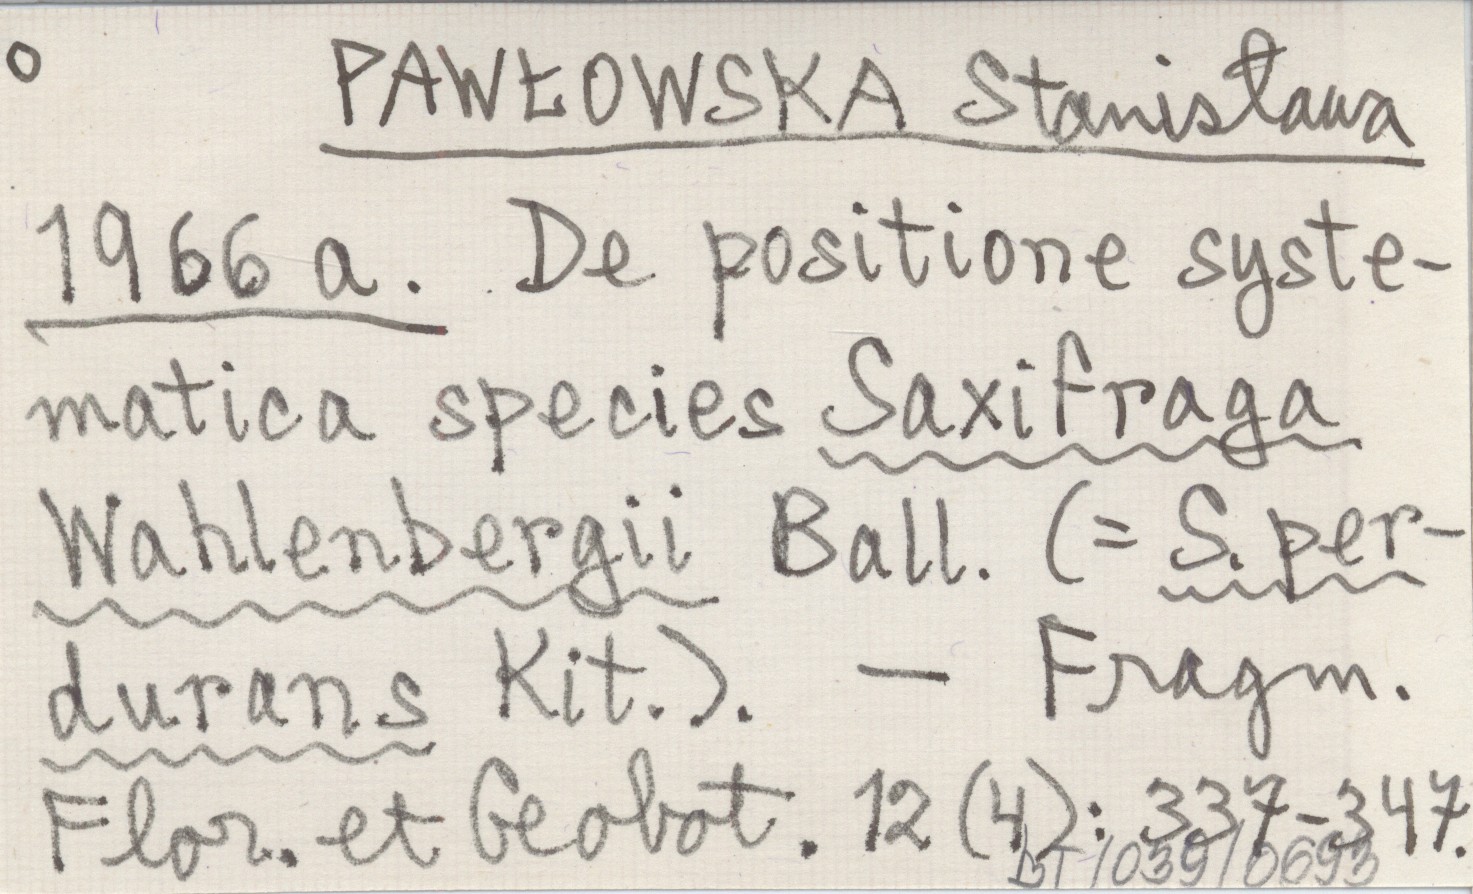 PAWŁOWSKA Stanisława
1966 a. De positione syste-
matica species Saxifraga
Wahlenbergii Ball. (= S. per-
durans Kit.). — Fragm.
Flor. et Geobot. 12 (4): 337-347.
BT/039/0693